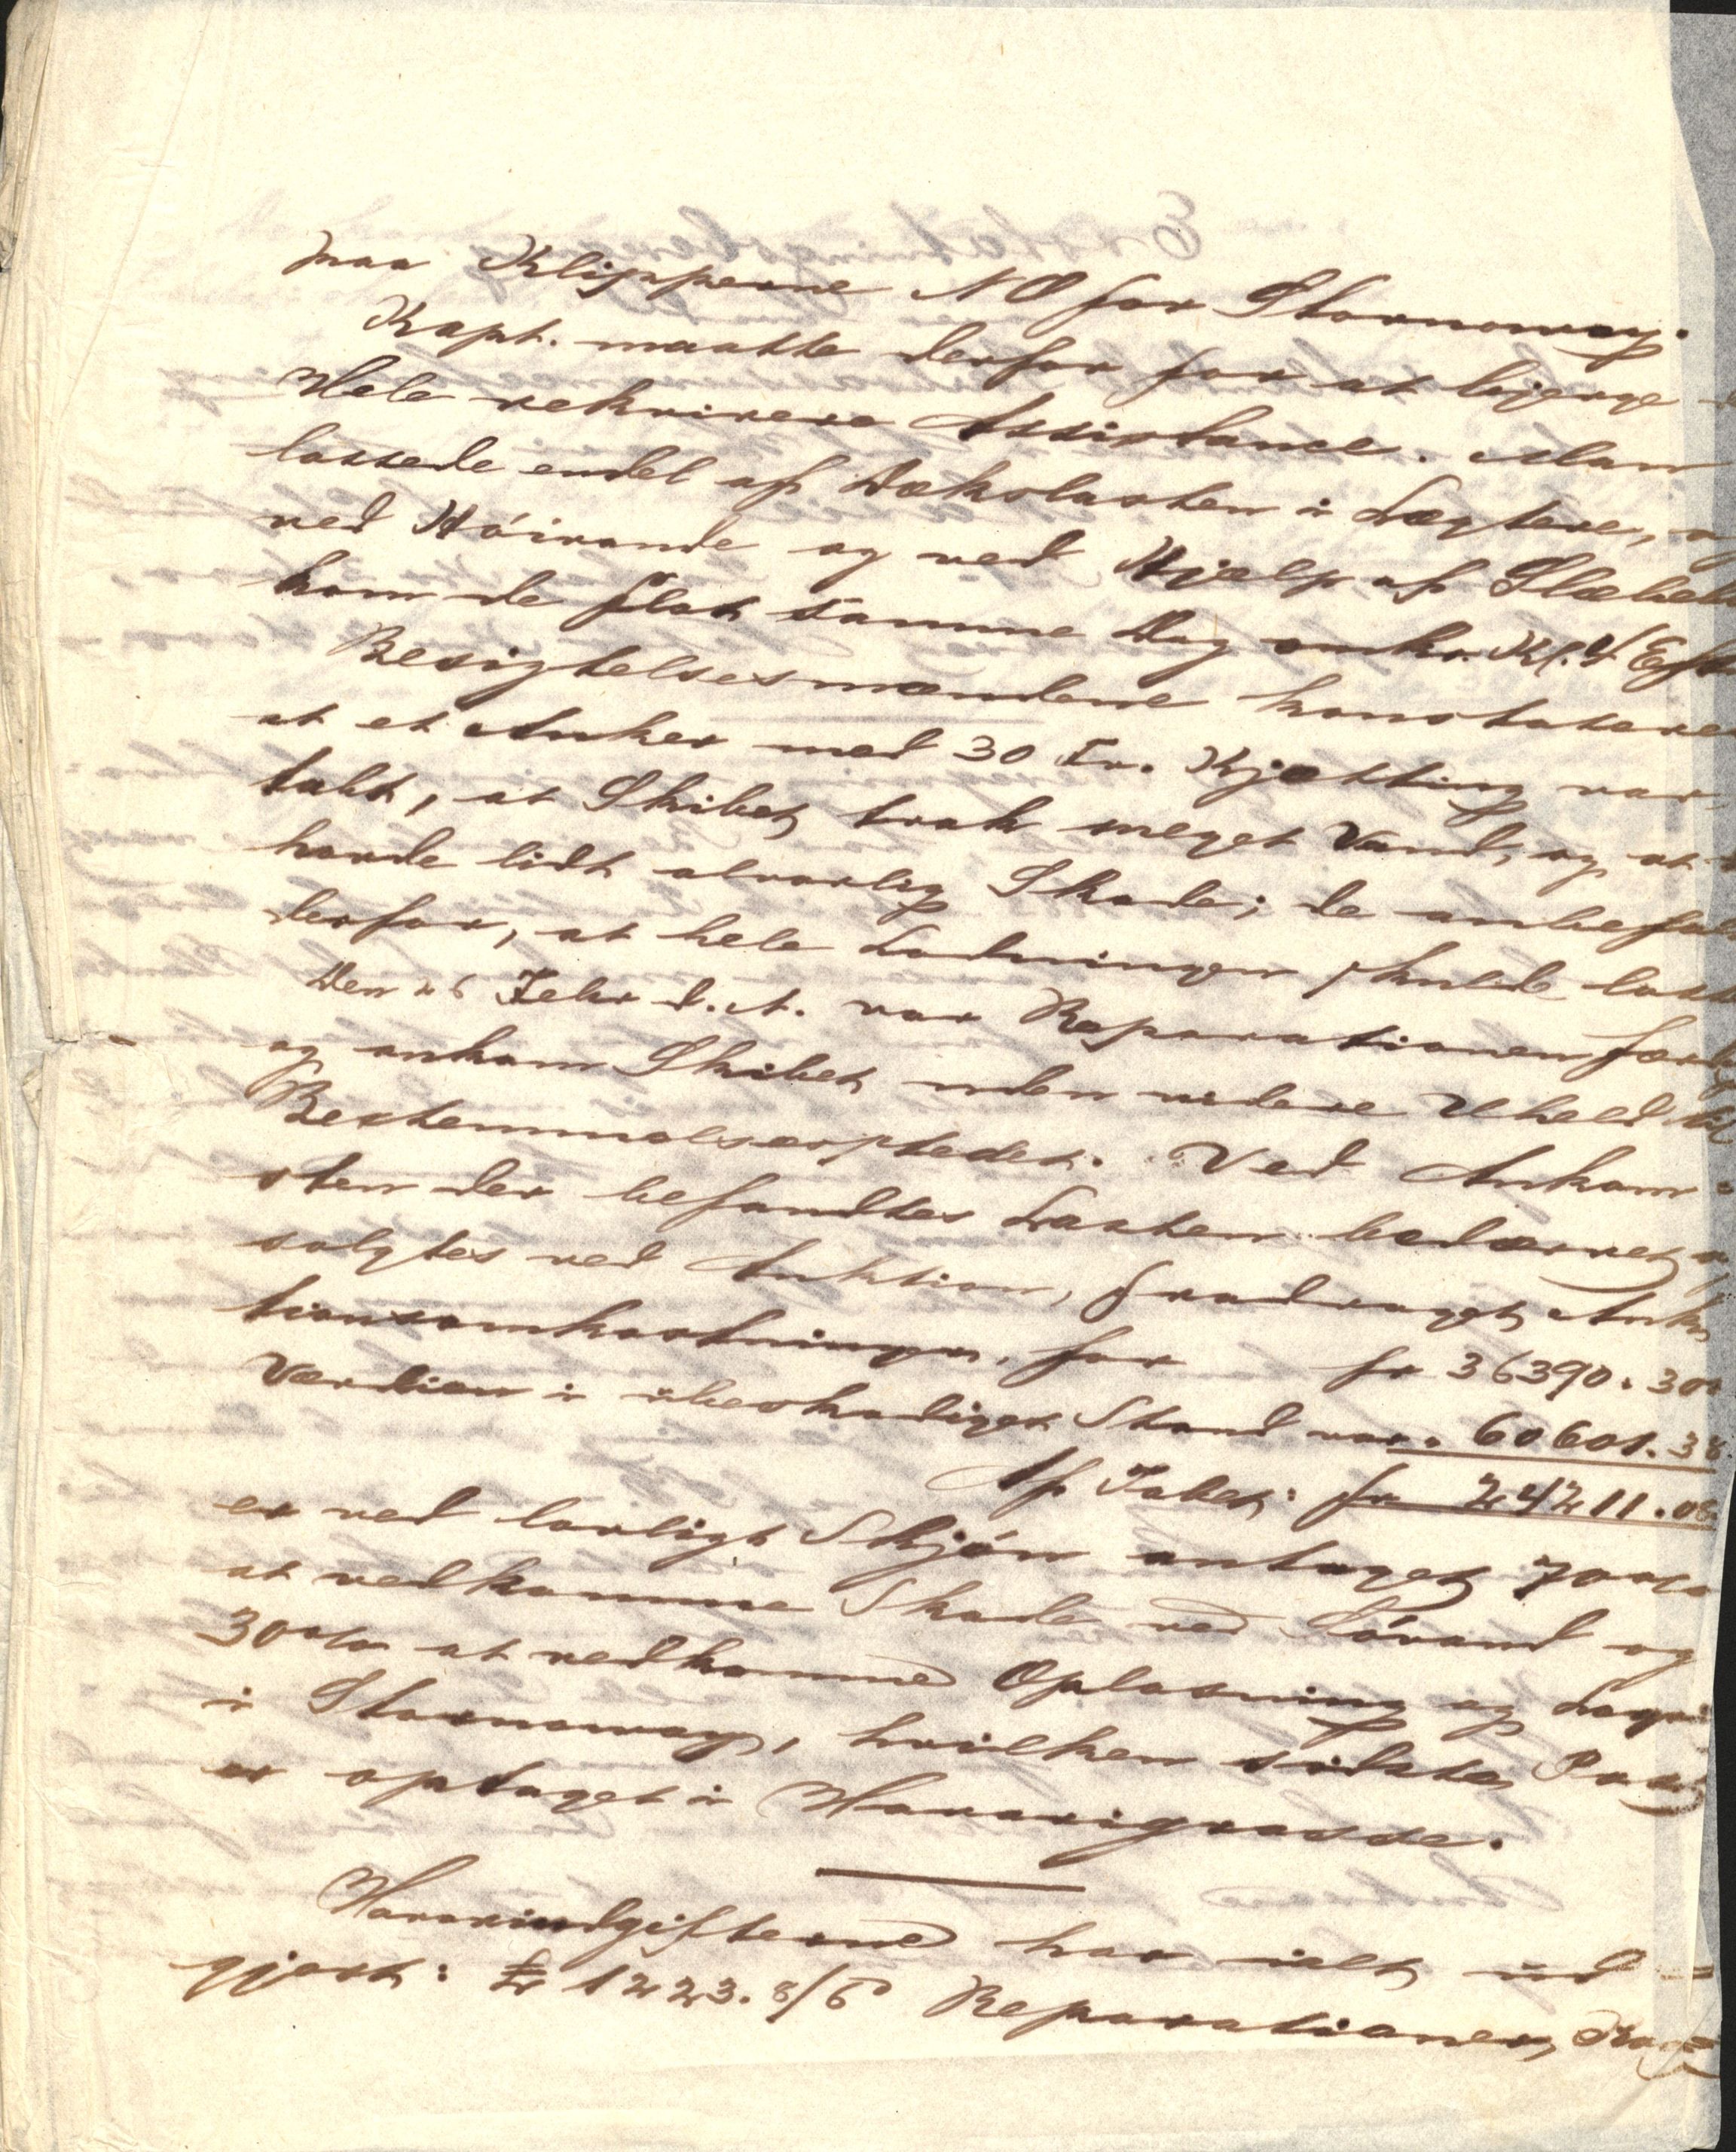 paa Klipperne NO for Stornoway.
Kapt. maatte derfor for at bjerge
Hele rekvirere Assistance. Man
lossede endel af Dækslasten i Lægtere, og
ved Höivande og ved Hjælp af Slæbeb
kom de flot samme Dag omkr. Kl. 4 Eft
Besigtelsesmændene konstatere
at et Anker med 30 Fv. Kjætting var
tabt, at Skibet trak meget Vand, og at
havde lidt alvorlig Skade; de anbefal
derfor, at hele Ladningen skulde loss
Den 26 Febr d. A. var Reparationen færdig
og ankom Skibet uden videre Uheld til
Bestemmelsesstedet. Ved Ankom-
sten der befandtes Lasten bedærvet og
solgtes ved Auktion, fradraget Auk
tionsomkostninger, for fr 36390.30
Værdien i ubeskadiget Stand var. 60601.38
Af Tabet: fr 24211.08
er ved lovligt Skjön antaget 70%
at vedkomme Skade ved Sövand og
30% at vedkomme Oplosning og Lagr
i Stornoway, hvilken sidste Post
er optaget i Havarigrosse.
Havariudgifterne har ialt ud-
gjort: £ 1223.8/6 Reparationer,